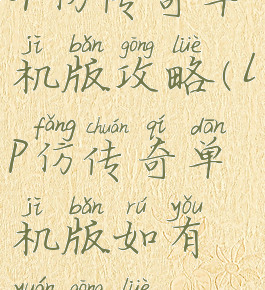 P仿传奇单
jī bǎn gōng lüè
机版攻略(l
fǎng chuán qí dān
P仿传奇单
jī bǎn rú yǒu
机版如有
yuán gōng lüè